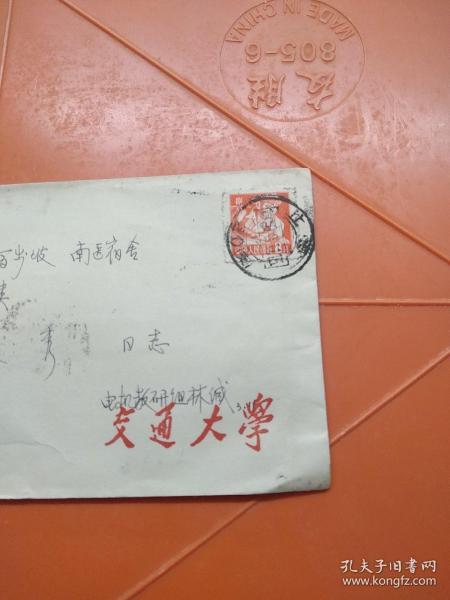 MADE IN CHINA
805-6
友胜
上海
百步坡 南医宿舍
秀
同志
电机教研组林
交通大學
孔夫子旧书网
www.kongfz.com